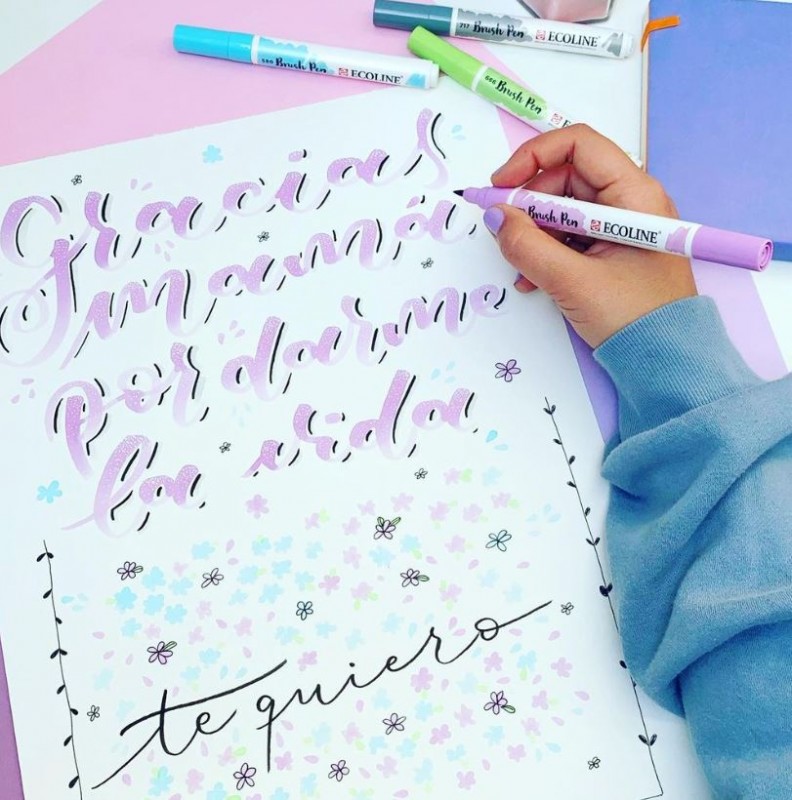 717 Brush Pen ECOLINE
Brush Pen ECOLINE
Brush Pen
Brush Pen ECOLINE
Gracias
mamá
por darme
la vida
te quiero